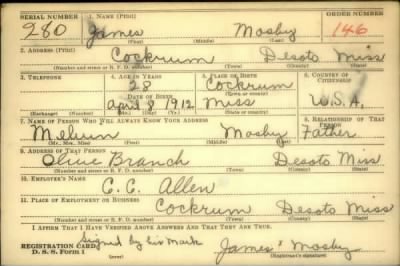 SERIAL NUMBER 1. NAME (Print) ORDER NUMBER
280 James Mosby 146
(First) (Middle) (Last)
2. ADDRESS (Print)
Cockrum Desoto Miss
(Number and street or R. F. D. number) (Town) (County) (State)
3. TELEPHONE 4. AGE IN YEARS 5. PLACE OF BIRTH 6. COUNTRY OF CITIZENSHIP
28 Cockrum
DATE OF BIRTH (Town or county)
April 8 1912 Miss U.S.A.
(Exchange) (Number) (Mo.) (Day) (Yr.) (State or country)
7. NAME OF PERSON WHO WILL ALWAYS KNOW YOUR ADDRESS 8. RELATIONSHIP OF THAT PERSON
Melvin Mosby Father
(Mr., Mrs., Miss) (First) (Middle) (Last)
9. ADDRESS OF THAT PERSON
Olive Branch Desoto Miss
(Number and street or R. F. D. number) (Town) (County) (State)
10. EMPLOYER'S NAME
C. C. Allen
11. PLACE OF EMPLOYMENT OR BUSINESS
Cockrum Desoto Miss
(Number and street or R. F. D. number) (Town) (County) (State)
I AFFIRM THAT I HAVE VERIFIED ABOVE ANSWERS AND THAT THEY ARE TRUE.
REGISTRATION CARD Signed by his Mark James Mosby
D. S. S. Form 1 (Registrant's signature)